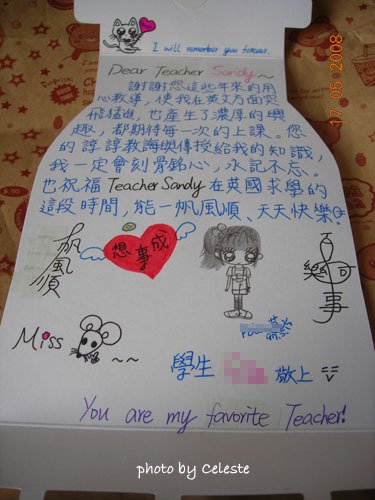 I will remember you forever.
17/05/2008
Dear Teacher Sandy~
謝謝您這些年來的用
心教導，使我在英文方面突
飛猛進，也產生了濃厚的興
趣，都期待每一次的上課。您
的諄諄教誨與傳授給我的知識，
我一定會刻骨銘心，永記不忘。
也祝福Teacher Sandy在英國求學的
這段時間，能一帆風順、天天快樂!
一帆風順
想事成
樂事
Miss
~~
學生 敬上
You are my favorite Teacher!
photo by Celeste